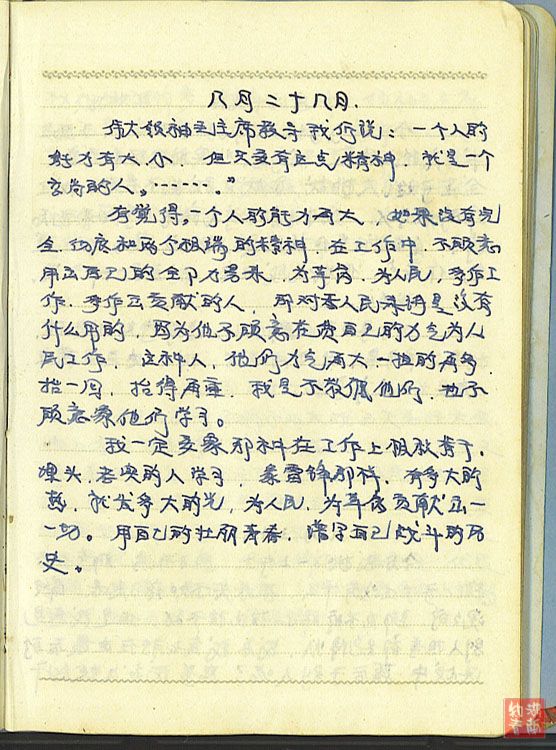 八月二十八日.
伟大领袖毛主席教导我们说：一个人的
能力有大小 但只要有这点精神 就是一个
高尚的人。……."
我觉得。个人的能力再大，如果没有完
全 彻底和两个极端的精神. 在工作中. 不愿意
用出自己的全部力量来. 为革命. 为人民. 多作工
作. 多作出贡献的人. 那对于人民来讲是没有
什么用的. 因为他不愿意在费自己的力气为人
民工作. 这种人. 他们力气再大一担的再多.
抬一次. 抬得再重. 我是不学他们. 也不
愿意象他们学习。
我一定要象那种在工作上很积极苦干.
埋头. 老实的人学习. 象雷锋那样. 有多大的
热. 就发多大的光. 为人民. 为革命贡献出一
一切。用自己的壮丽青春. 谱写自己战斗的历
史。